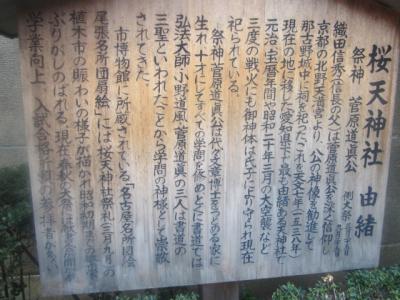 桜天神社 由緒
祭神 菅原道眞公 例大祭
織田信秀(信長の父)は菅原道眞公を深く信仰し
京都の北野天満宮より、公の神像を勧進して
那古野城中に祠を祀った(これを天文七年(一五三八年)
現在の地に移した)愛知県下最も由緒ある天神社で
元治、宝暦年間や昭和二十年三月の大空襲など
三度の戦火にも御神体は氏子により守られ現在
に祀られている。
祭神菅原道眞公は代々文章博士をつとめる家に
生れ、十才にしてすべての学問を修めとくに書道では
弘法大師、小野道風、菅原道眞の三人は書道の
三聖といわれたことから学問の神様として崇敬
されてきた。
市博物館に所蔵されている「名古屋名所団扇絵」
尾張名所団扇絵」には桜天神社祭礼三月九日の
植木市の賑わいの様子が描かれ昭和初期までの
ぶりがしのばれる。現在、春秋の大祭には
学業向上、入試合格祈願の参拝者が多い